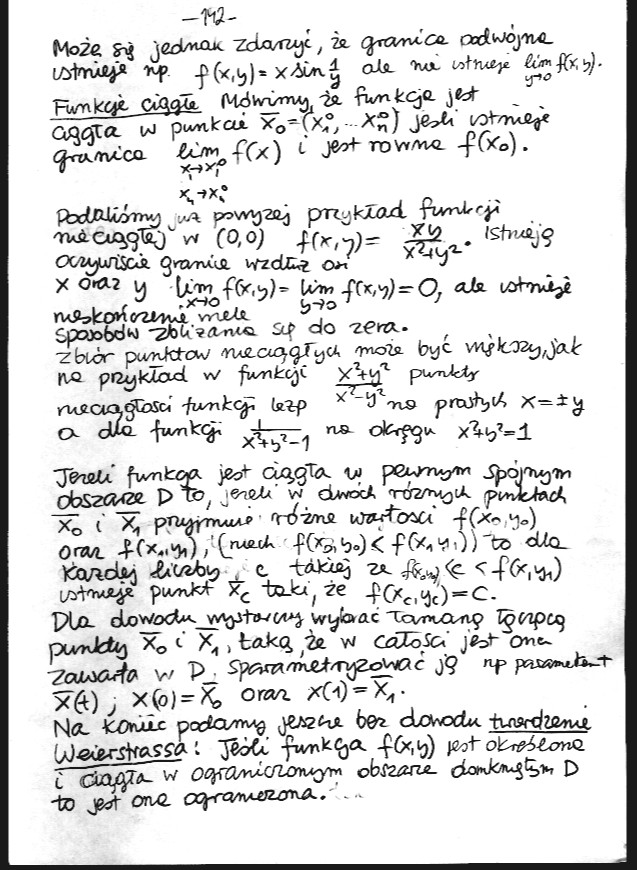 —142-
Może się jednak zdarzyć, że granica podwójna
istnieje np. f(x,y) = x sin 1/y ale nie istnieje lim y→0 f(x,y).
Funkcje ciągłe Mówimy, że funkcja jest
ciągła w punkcie X̄₀=(x₁⁰, ... xₙ⁰) jeśli istnieje
granica lim f(x) i jest równa f(x₀).
x₁→x₁⁰
xₙ→xₙ⁰
Podaliśmy już powyżej przykład funkcji
nieciągłej w (0,0) f(x,y) = xy/(x²+y²). Istnieją
oczywiście granice wzdłuż osi
x oraz y lim x→0 f(x,y) = lim y→0 f(x,y) = 0, ale istnieje
nieskończenie wiele
sposobów zbliżania się do zera.
Zbiór punktów nieciągłych może być większy, jak
na przykład w funkcji (x²+y²)/(x²-y²) punkty
nieciągłości funkcji leżą na prostych x=±y
a dla funkcji 1/(x²+y²-1) na okręgu x²+y²=1
Jeżeli funkcja jest ciągła w pewnym spójnym
obszarze D to, jeżeli w dwóch różnych punktach
X̄₀ i X̄₁ przyjmuje różne wartości f(x₀,y₀)
oraz f(x₁,y₁), (niech f(x₀,y₀) < f(x₁,y₁)) to dla
każdej liczby c takiej że f(x₀,y₀) < c < f(x₁,y₁)
istnieje punkt X̄c taki, że f(xc,yc) = c.
Dla dowodu wystarczy wybrać łamaną łączącą
punkty X̄₀ i X̄₁, taką, że w całości jest ona
zawarta w D, sparametryzować ją np parametrem t
X̄(t), X(0)=X̄₀ oraz x(1)=X̄₁.
Na koniec podamy jeszcze bez dowodu twierdzenie
Weierstrassa: Jeśli funkcja f(x,y) jest określona
i ciągła w ograniczonym obszarze domkniętym D
to jest ona ograniczona.